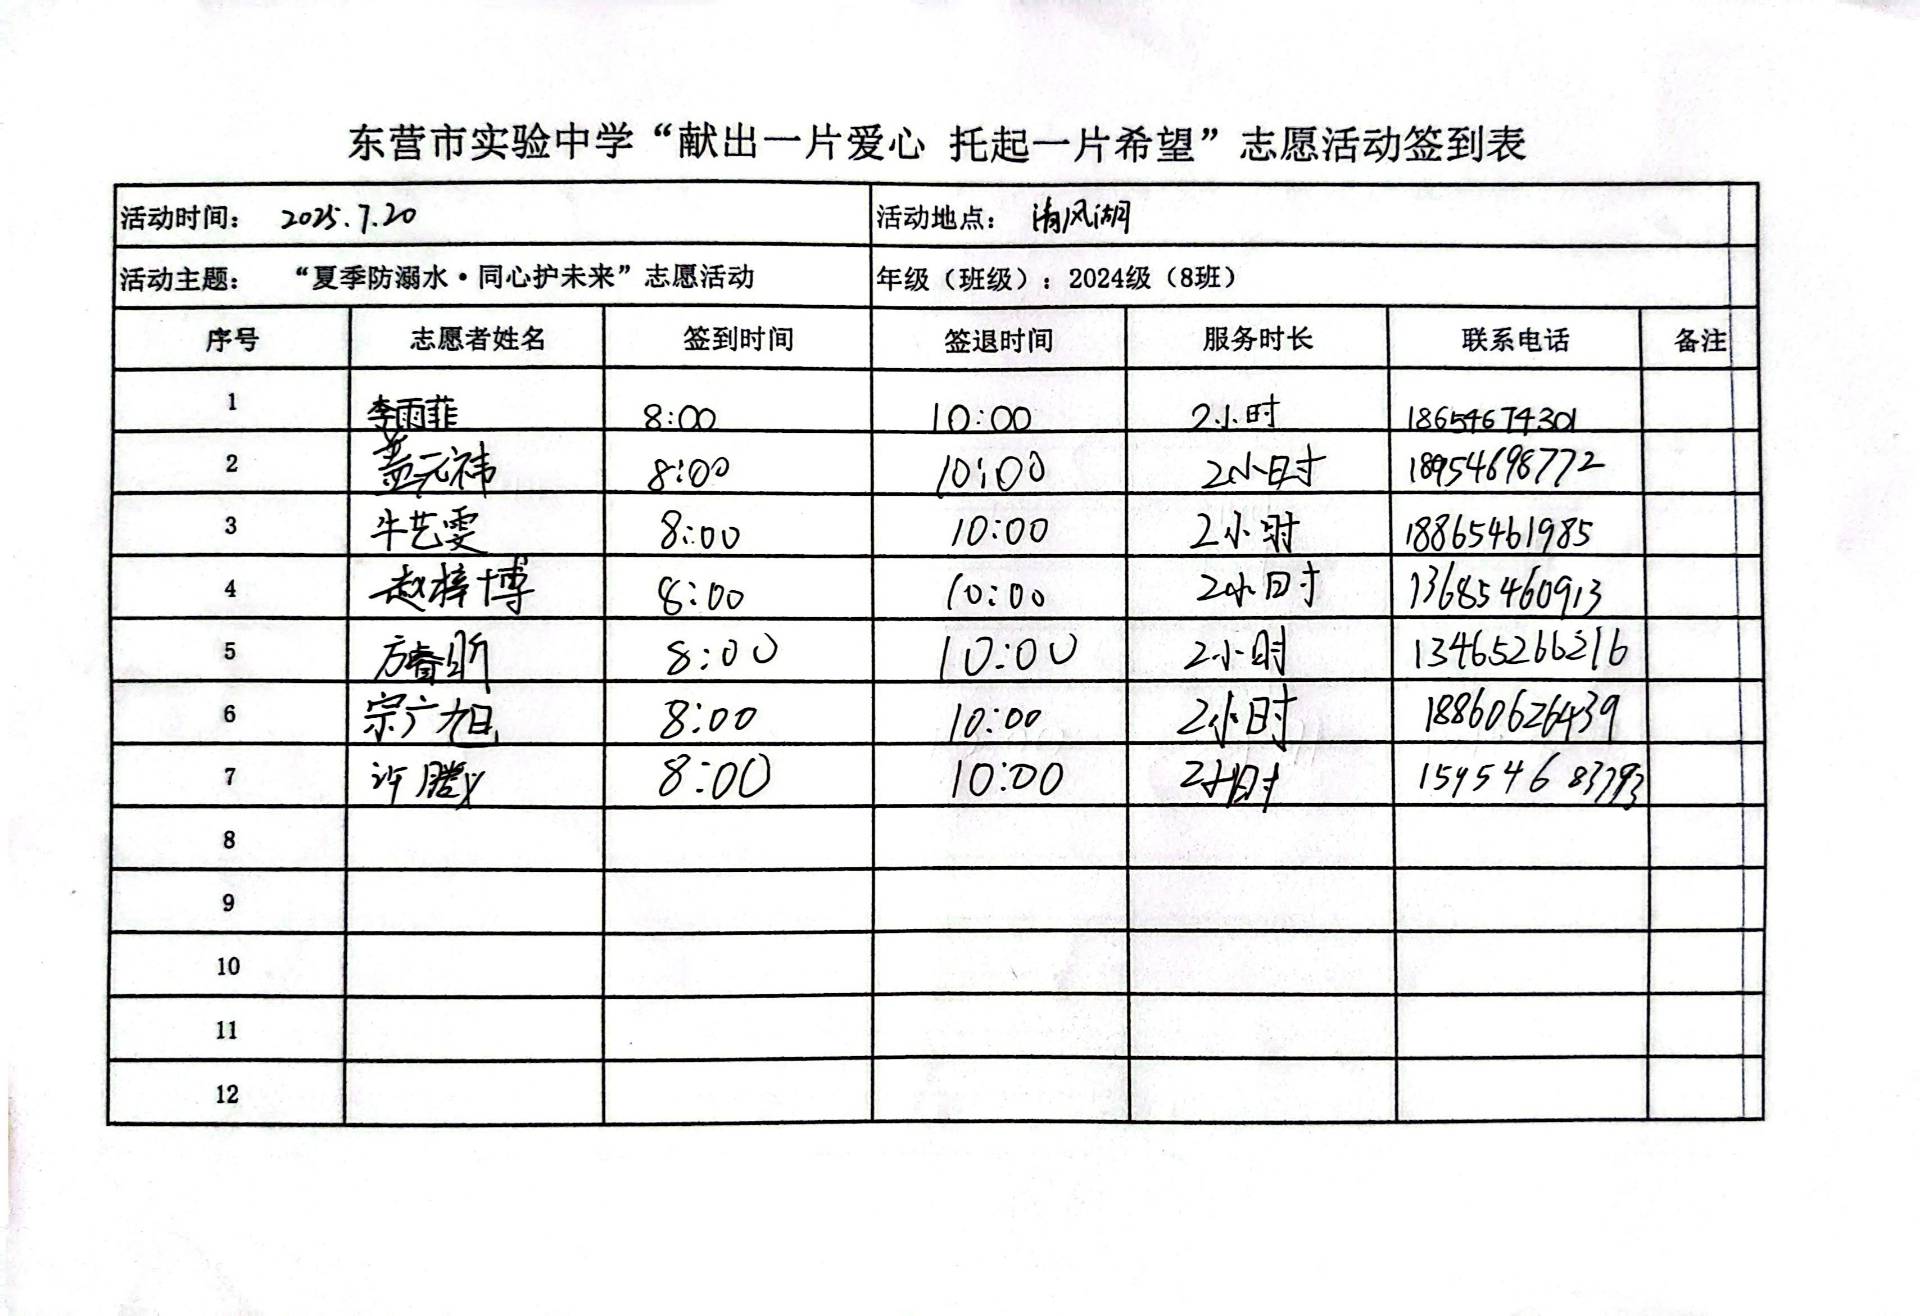 东营市实验中学“献出一片爱心 托起一片希望”志愿活动签到表
活动时间： 2025.7.20 活动地点： 清风湖
活动主题： “夏季防溺水·同心护未来”志愿活动 年级（班级）：2024级（8班）
序号 志愿者姓名 签到时间 签退时间 服务时长 联系电话 备注
1 李雨菲 8:00 10:00 2小时 18654674301
2 盖元祎 8:00 10:00 2小时 18954698772
3 牛艺雯 8:00 10:00 2小时 18865461985
4 赵梓博 8:00 10:00 2小时 13685460913
5 方睿昕 8:00 10:00 2小时 13465266216
6 宗广旭 8:00 10:00 2小时 18860626439
7 许腾义 8:00 10:00 2小时 15954683793
8
9
10
11
12